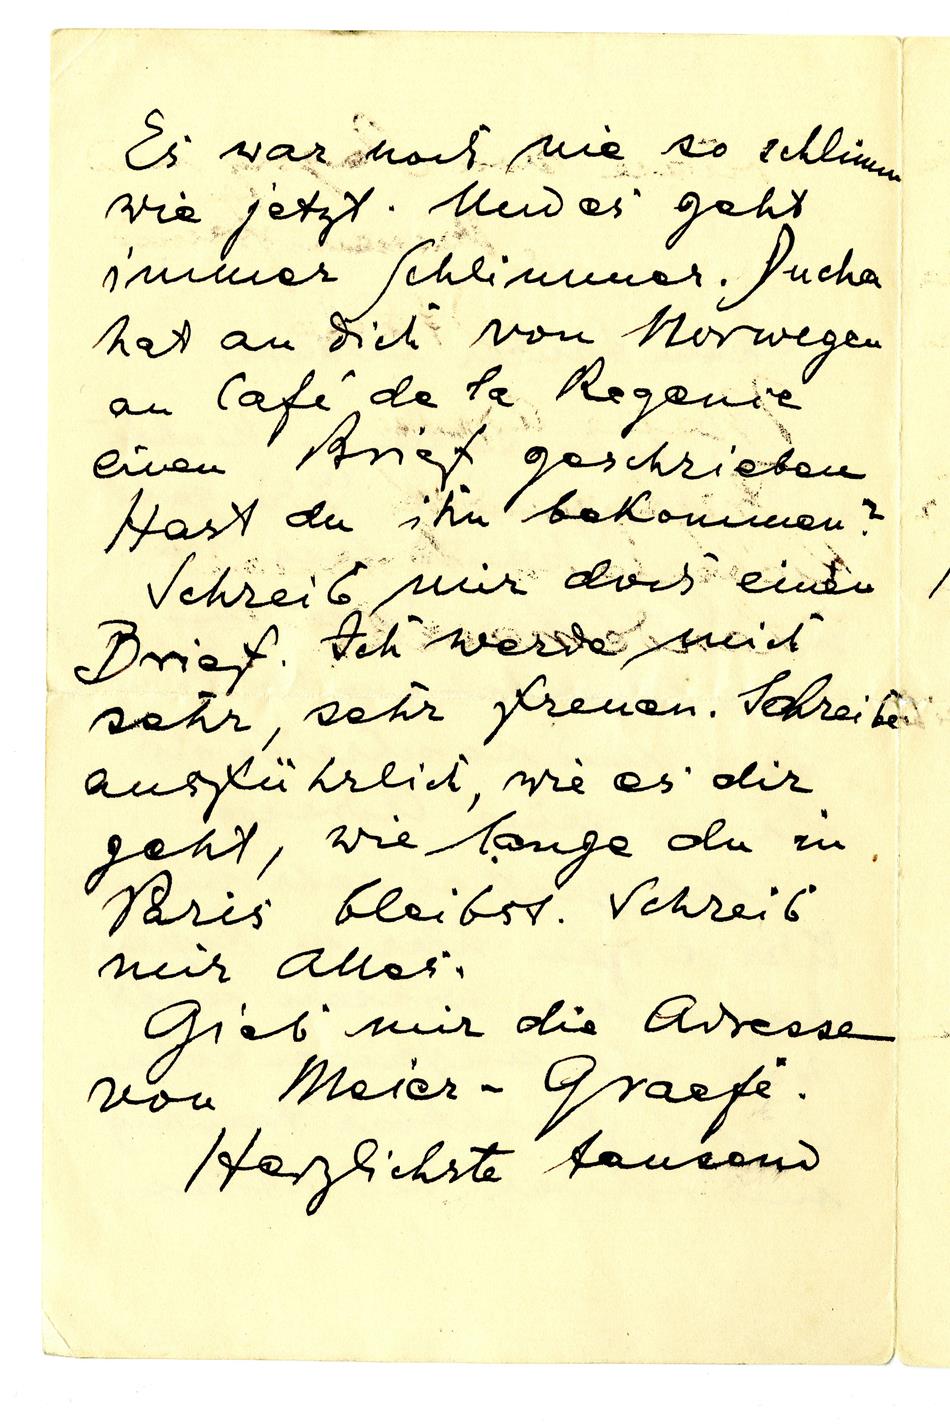 Es war noch nie so schlimm
wie jetzt. Und es geht
immer Schlimmer. Ducha
hat an dich von Norwegen
an Café de la Regence
einen Brief geschrieben
Hast du ihn bekommen?
Schreib mir doch einen
Brief. Ich werde mich
sehr, sehr freuen. Schreibe
ausführlich, wie es dir
geht, wie lange du in
Paris bleibst. Schreib
mir Alles.
Gieb mir die Adresse
von Meier-Graefe.
Herzlichste tausend